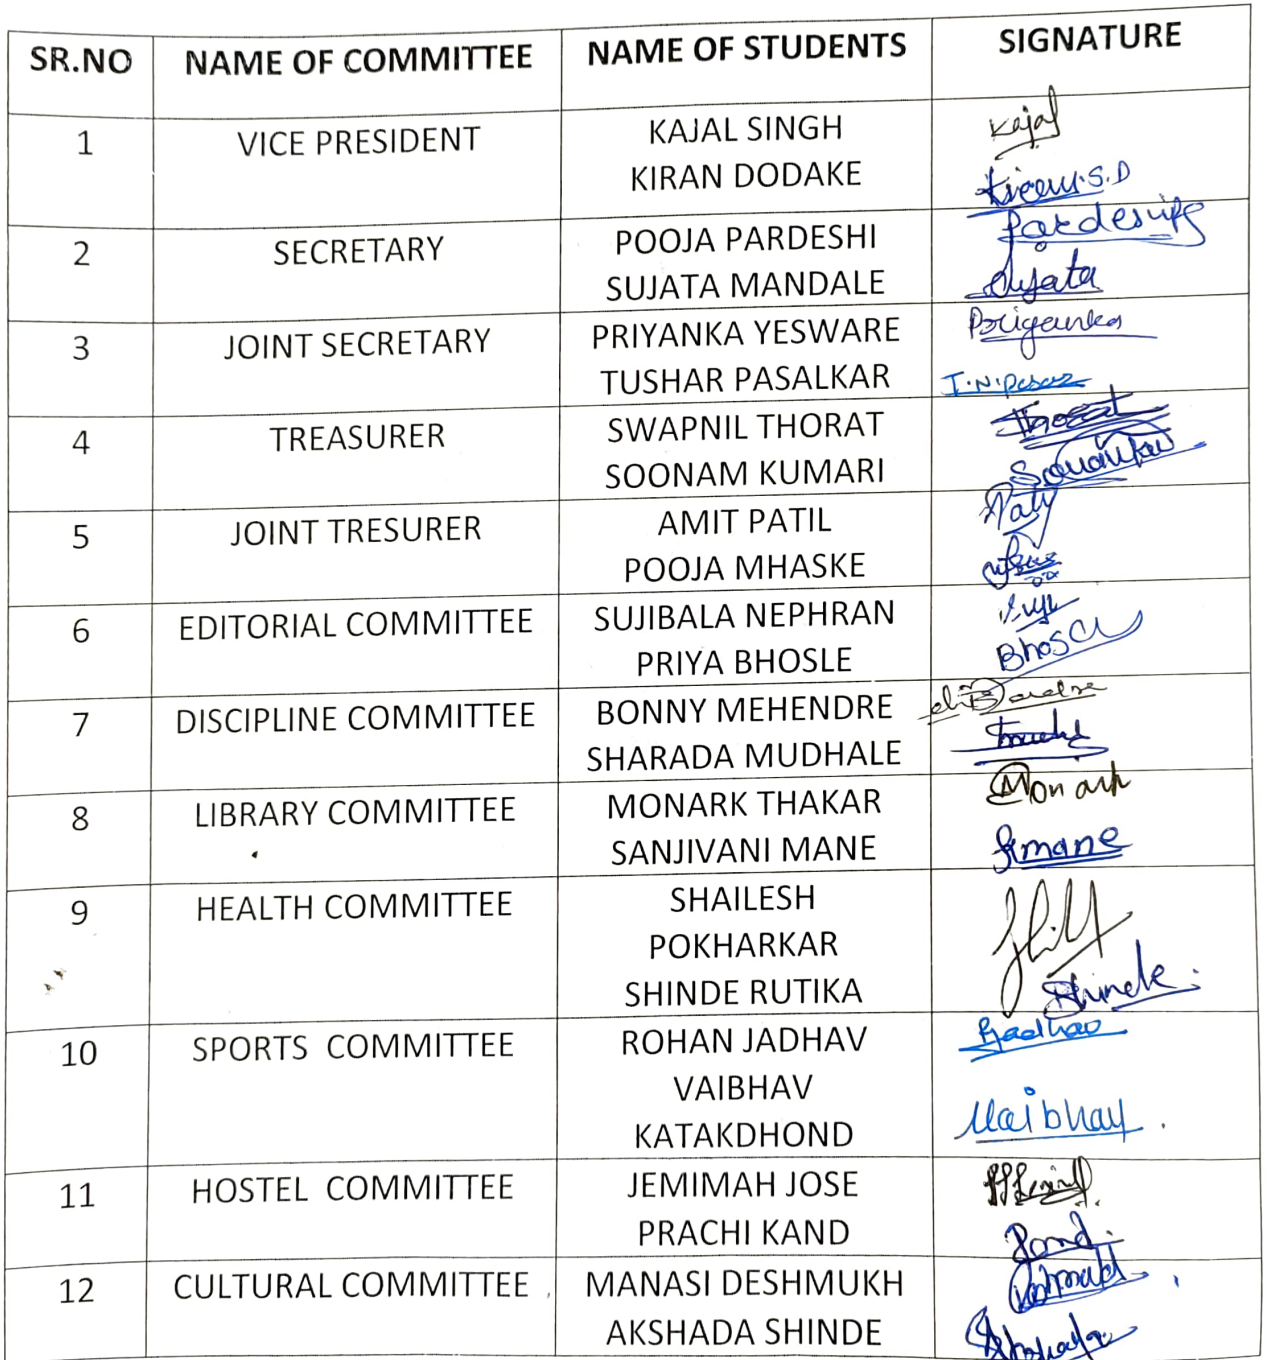 SR.NO NAME OF COMMITTEE NAME OF STUDENTS SIGNATURE
1 VICE PRESIDENT KAJAL SINGH Kajal
KIRAN DODAKE Kiran.S.D
2 SECRETARY POOJA PARDESHI Pardeshi
SUJATA MANDALE Sujata
3 JOINT SECRETARY PRIYANKA YESWARE Priyanka
TUSHAR PASALKAR
4 TREASURER SWAPNIL THORAT Thorat
SOONAM KUMARI
5 JOINT TRESURER AMIT PATIL
POOJA MHASKE
6 EDITORIAL COMMITTEE SUJIBALA NEPHRAN
PRIYA BHOSLE
7 DISCIPLINE COMMITTEE BONNY MEHENDRE
SHARADA MUDHALE
8 LIBRARY COMMITTEE MONARK THAKAR Monark
SANJIVANI MANE Smane
9 HEALTH COMMITTEE SHAILESH
POKHARKAR
SHINDE RUTIKA Shinde
10 SPORTS COMMITTEE ROHAN JADHAV RJadhav
VAIBHAV
KATAKDHOND Vaibhav
11 HOSTEL COMMITTEE JEMIMAH JOSE
PRACHI KAND
12 CULTURAL COMMITTEE MANASI DESHMUKH
AKSHADA SHINDE